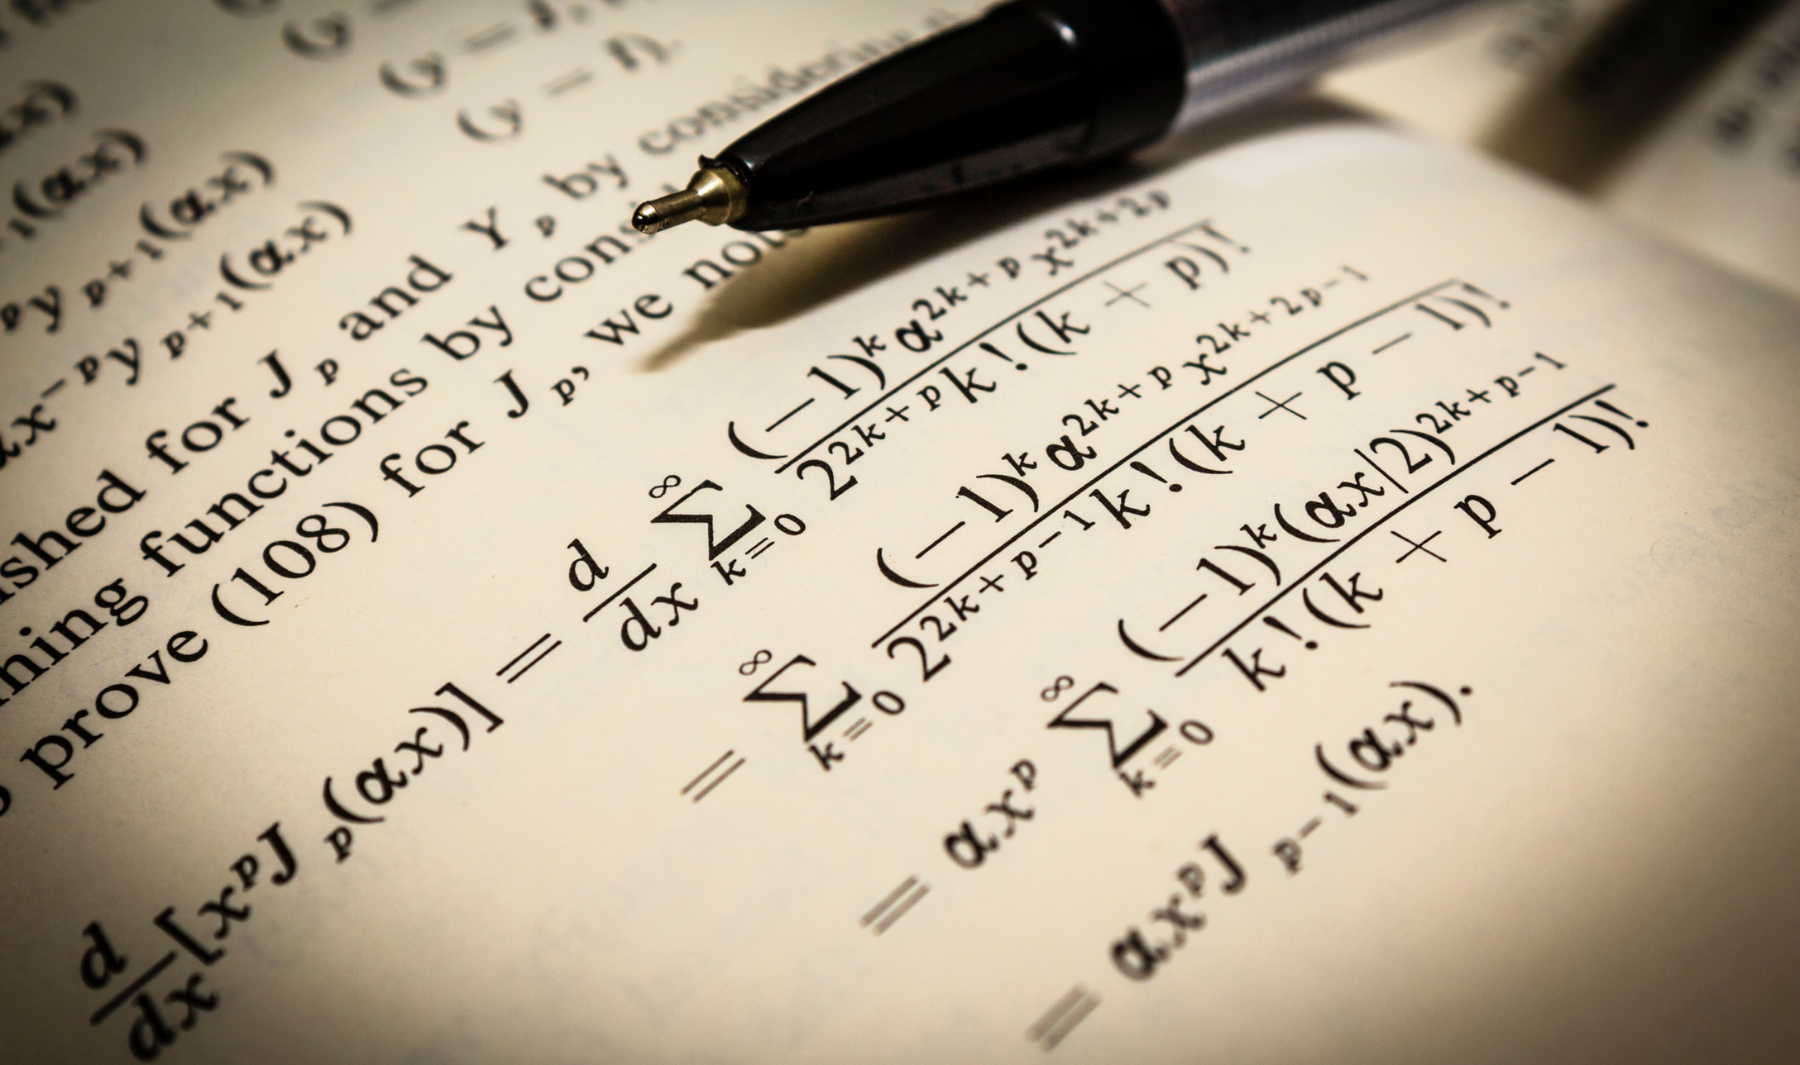 (αx)
p y p+1(αx)
αx^{-p} y p+1(αx)
ished for J_p and Y_p by considering
ning functions by cons
prove (108) for J_p, we not
\frac{d}{dx}[x^p J_p(αx)] = \frac{d}{dx} \sum_{k=0}^{∞} \frac{(-1)^k α^{2k+p} x^{2k+2p}}{2^{2k+p} k!(k + p)!}
= \sum_{k=0}^{∞} \frac{(-1)^k α^{2k+p} x^{2k+2p-1}}{2^{2k+p-1} k!(k + p - 1)!}
= αx^p \sum_{k=0}^{∞} \frac{(-1)^k (αx/2)^{2k+p-1}}{k!(k + p - 1)!}
= αx^p J_{p-1}(αx).